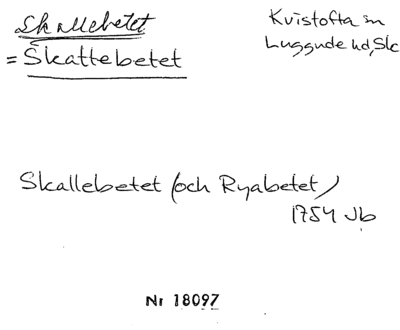 Skallebetet
= Skattebetet
Kvistofta sn
Luggude hd, Sk
Skallebetet (och Ryabetet)
1754 Jb
Nr 18097